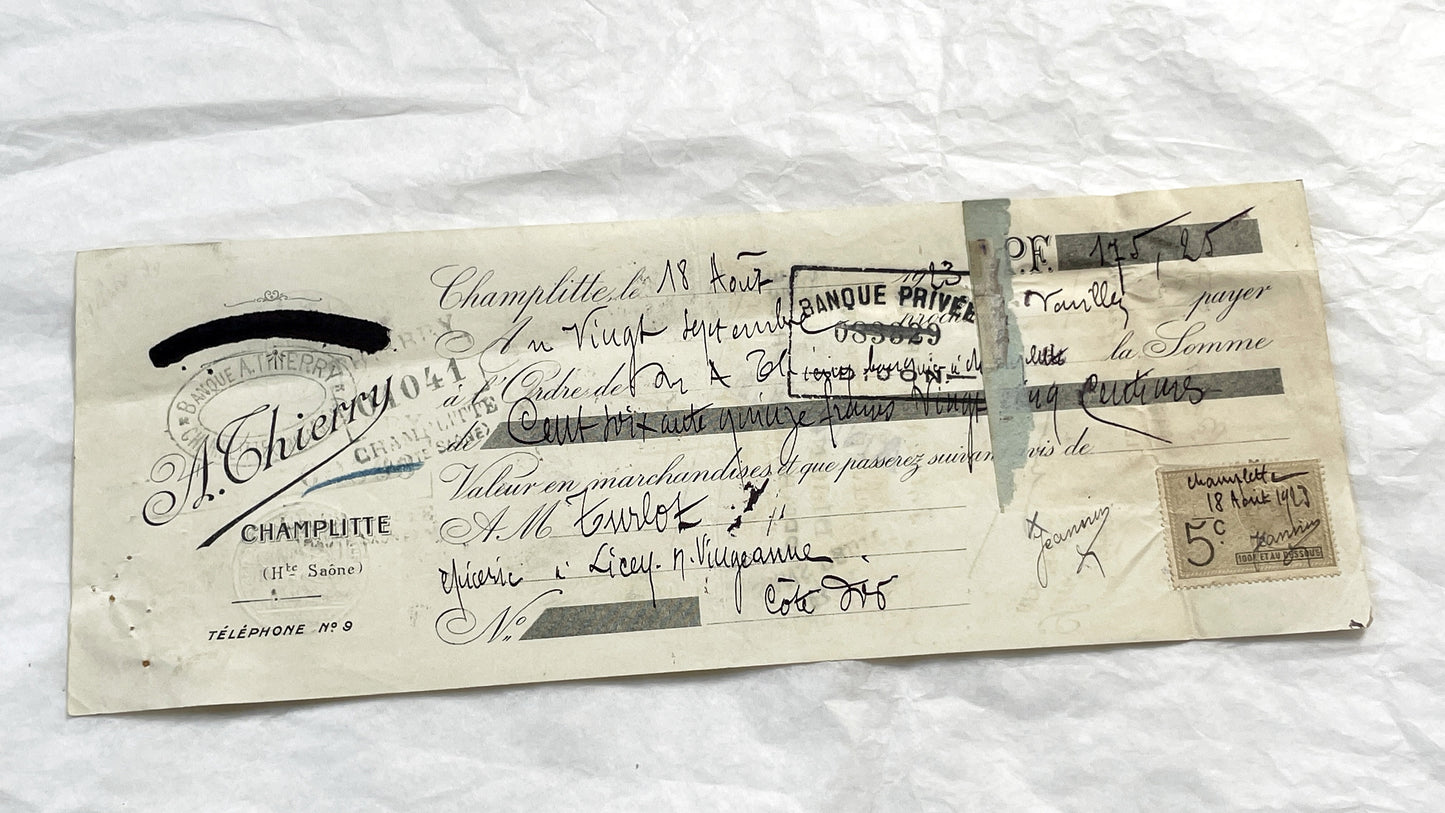 BANQUE A. THIERRY
A. Thierry
CHAMPLITTE
(Hte Saône)
TÉLÉPHONE No 9
01041
CHAMPLITTE
Champlitte, le 18 Août 1923
B.P.F. 175,25
BANQUE PRIVÉE
083329
DIJON
Au Vingt septembre proch Veuillez payer
à l'Ordre de la Somme
de Cent soixante quinze francs Vingt cinq Centimes
Valeur en marchandises et que passerez suivant avis de
A M Turlot
épicerie à Licey s. Vingeanne
Côte d'Or
No
Jeannin
Champlitte
18 Août 1923
5c
Jeannin
100F ET AU DESSOUS